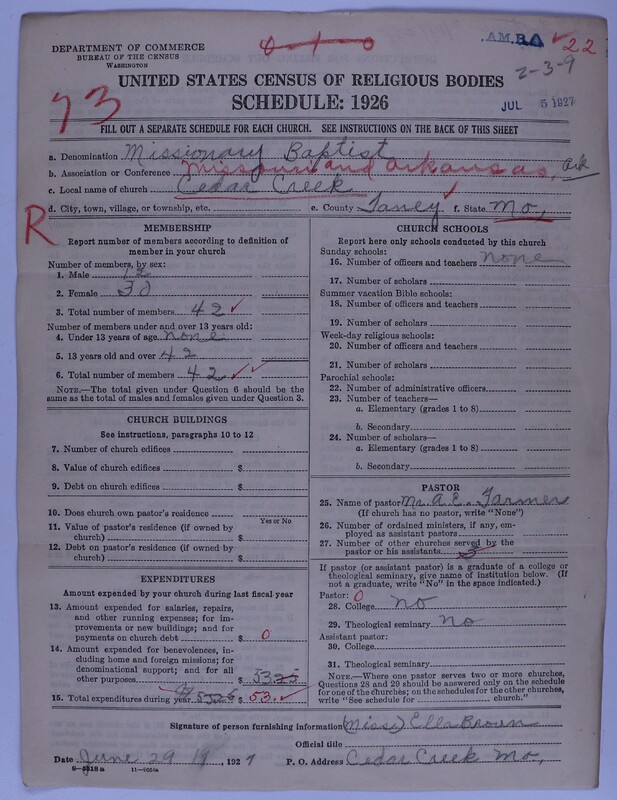 DEPARTMENT OF COMMERCE
BUREAU OF THE CENSUS
WASHINGTON
0-1-0
.AM.BA 22
2-3-9
UNITED STATES CENSUS OF RELIGIOUS BODIES
SCHEDULE: 1926
JUL 5 1927
73
FILL OUT A SEPARATE SCHEDULE FOR EACH CHURCH. SEE INSTRUCTIONS ON THE BACK OF THIS SHEET
a. Denomination Missionary Baptist
b. Association or Conference Missouri and arkansas, Ark
c. Local name of church Cedar Creek
d. City, town, village, or township, etc. e. County Taney f. State Mo,
R
MEMBERSHIP
Report number of members according to definition of member in your church
Number of members, by sex:
1. Male 12
2. Female 30
3. Total number of members 42
Number of members under and over 13 years old:
4. Under 13 years of age none
5. 13 years old and over 42
6. Total number of members 42
NOTE.—The total given under Question 6 should be the
same as the total of males and females given under Question 3.
CHURCH BUILDINGS
See instructions, paragraphs 10 to 12
7. Number of church edifices
8. Value of church edifices $
9. Debt on church edifices $
10. Does church own pastor's residence
Yes or No
11. Value of pastor's residence (if owned by
church) $
12. Debt on pastor's residence (if owned by
church) $
EXPENDITURES
Amount expended by your church during last fiscal year
13. Amount expended for salaries, repairs,
and other running expenses; for im-
provements or new buildings; and for
payments on church debt $ 0
14. Amount expended for benevolences, in-
cluding home and foreign missions; for
denominational support; and for all
other purposes $ 5325
15. Total expenditures during year $ 53.
CHURCH SCHOOLS
Report here only schools conducted by this church
Sunday schools:
16. Number of officers and teachers none
17. Number of scholars
Summer vacation Bible schools:
18. Number of officers and teachers
19. Number of scholars
Week-day religious schools:
20. Number of officers and teachers
21. Number of scholars
Parochial schools:
22. Number of administrative officers
23. Number of teachers—
a. Elementary (grades 1 to 8)
b. Secondary
24. Number of scholars—
a. Elementary (grades 1 to 8)
b. Secondary
PASTOR
25. Name of pastor Mr. A.E. Farmer
(If church has no pastor, write "None")
26. Number of ordained ministers, if any, em-
ployed as assistant pastors
27. Number of other churches served by the
pastor or his assistants 3
If pastor (or assistant pastor) is a graduate of a college or
theological seminary, give name of institution below. (If
not a graduate, write "No" in the space indicated.)
Pastor: 0
28. College no
29. Theological seminary no
Assistant pastor:
30. College
31. Theological seminary
NOTE.—Where one pastor serves two or more churches,
Questions 28 and 29 should be answered only on the schedule
for one of the churches; on the schedules for the other churches,
write "See schedule for church."
Signature of person furnishing information (Miss) Ella Brown
Official title
Date June 29 19, 1927 P. O. Address Cedar Creek Mo,